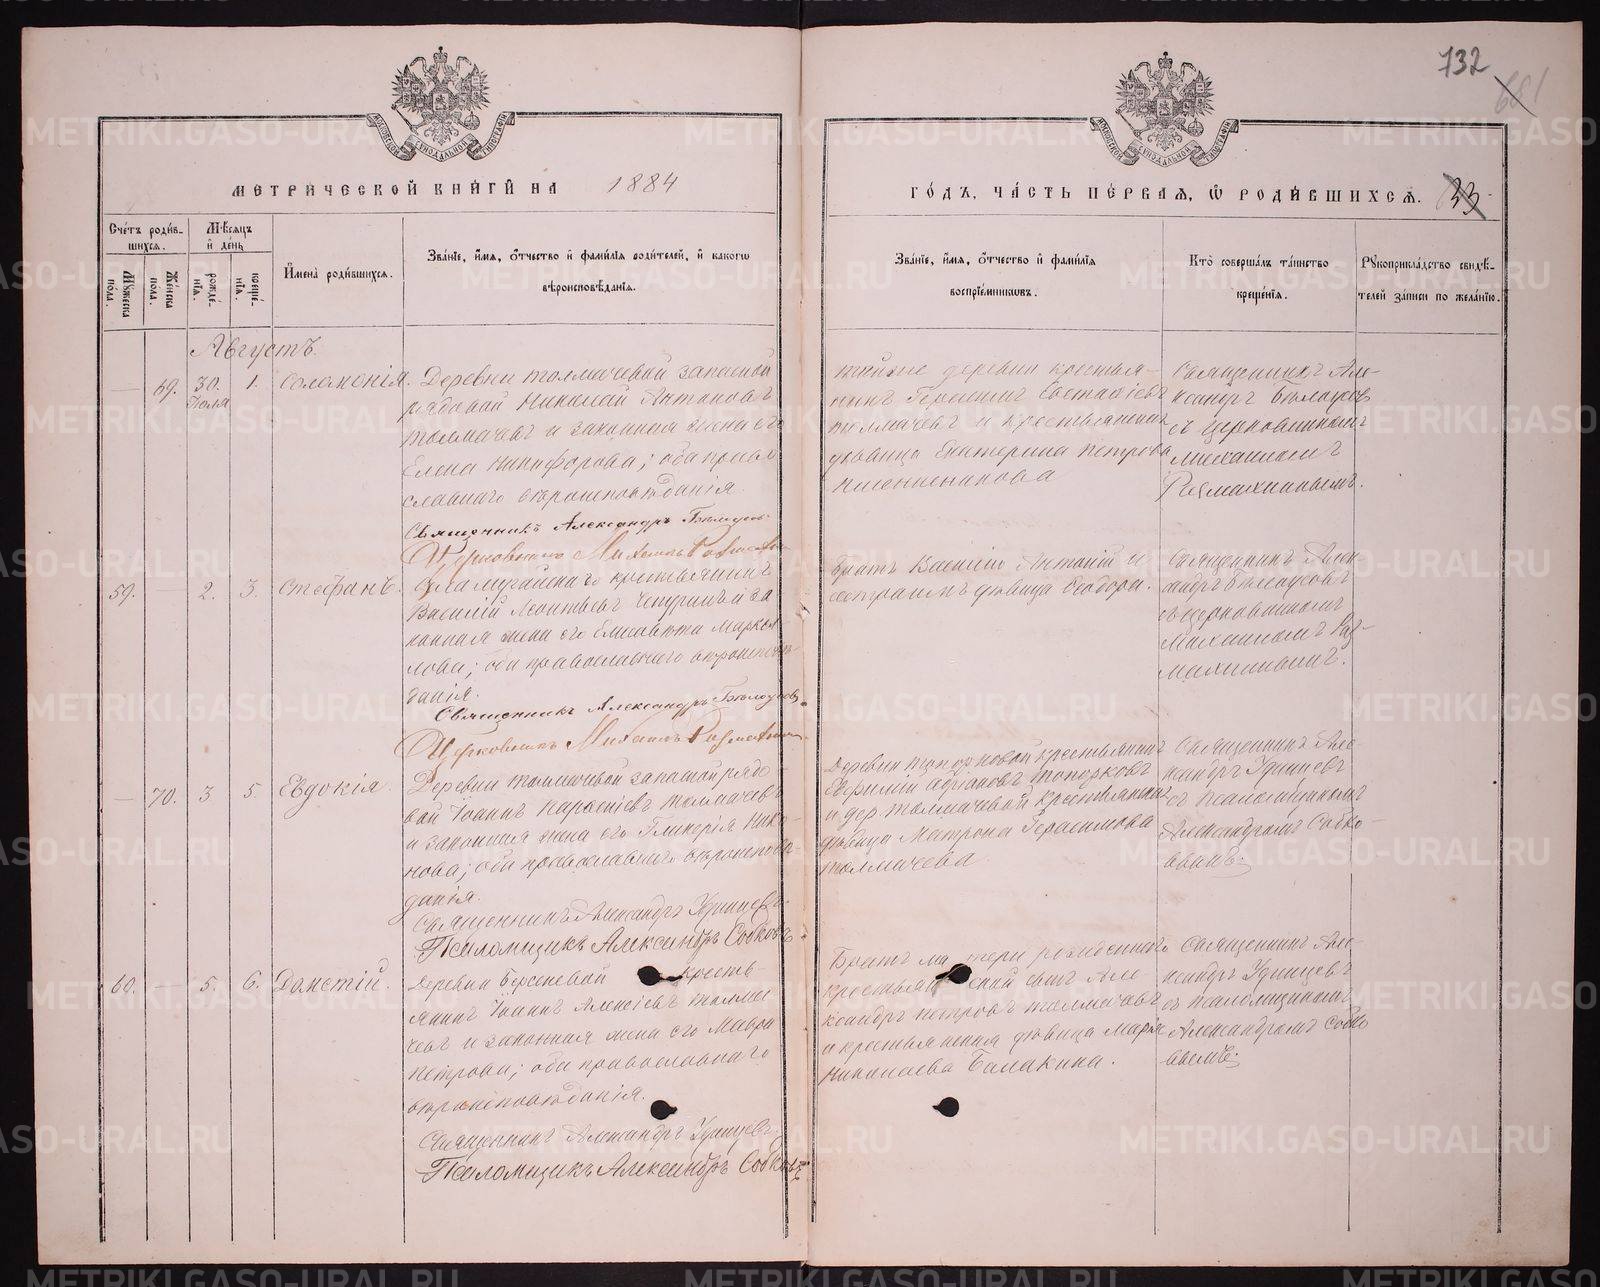 732
681
МЕТРИЧЕСКОЙ КНИГИ НА 1884
ГОДЪ, ЧАСТЬ ПЕРВАЯ, Ѡ РОДИВШИХСЯ. 33
Счетъ родившихся.
Мужеска пола.
Женска пола.
Мѣсяцъ и день
рожденія.
крещенія.
Имена родившихся.
Званіе, имя, отчество и фамилія родителей, и какого
вѣроисповѣданія.
Званіе, имя, отчество и фамилія
воспріемниковъ.
Кто совершалъ таинство
крещенія.
Рукоприкладство свидѣ-
телей записи по желанію.
Августъ.
69. 30. Іюля 1. Соломонія.
Деревни Толмачевой запасной
рядовой Николай Антоновъ
Толмачевъ и законная жена его
Елена Никифорова; оба право
славнаго вѣроисповѣданія.
Священникъ Александръ Бѣлоусовъ
Церковникъ Михаилъ
деревни крестья-
нинъ Герасимъ Евстафіевъ
Толмачевъ и крестьянская
дѣвица Екатерина Петрова
Священникъ Але-
ксандръ Бѣлоусов
съ церковникомъ
Михаиломъ
59. 2. 3. Стефанъ.
крестьянинъ
Василій Леонтьевъ Чепуринъ и за
конная жена его Елисавета
оба православнаго вѣроисповѣ-
данія.
Священникъ Александръ Бѣлоусовъ
Церковникъ Михаилъ
братъ Василій Антоній и
дѣвица Ѳеодора.
Священникъ Алек
сандръ Бѣлоусовъ
съ церковникомъ
Михаиломъ
70. 3 5. Евдокія.
Деревни Толмачевой запасной рядо-
вой Іоаннъ Толмачевъ
и законная жена его Гликерія Нико-
нова; оба православнаго вѣроисповѣ-
данія.
Священникъ Александръ Удинцевъ
Псаломщикъ Александръ
Деревни Топорковой крестьянинъ
Евфимій Адріановъ Топорковъ
и дер. Толмачевой крестьянская
дѣвица Матрона Герасимова
Толмачева
Священникъ Але-
ксандръ Удинцевъ
съ псаломщикомъ
Александромъ
60. 5. 6. Дометій.
Деревни Берсеневой кресть-
янинъ Іоаннъ Алексіевъ Толма
чевъ и законная жена его Мавра
Петрова; оба православнаго
вѣроисповѣданія.
Священникъ Александръ Удинцевъ
Псаломщикъ Александръ
Братъ матери
крестьянскій сынъ Але
ксандръ Петровъ Толмачевъ
и крестьянская дѣвица Марія
Николаева Балакина.
Священникъ Але-
ксандръ Удинцевъ
съ псаломщикомъ
Александромъ
METRIKI.GASO-URAL.RU